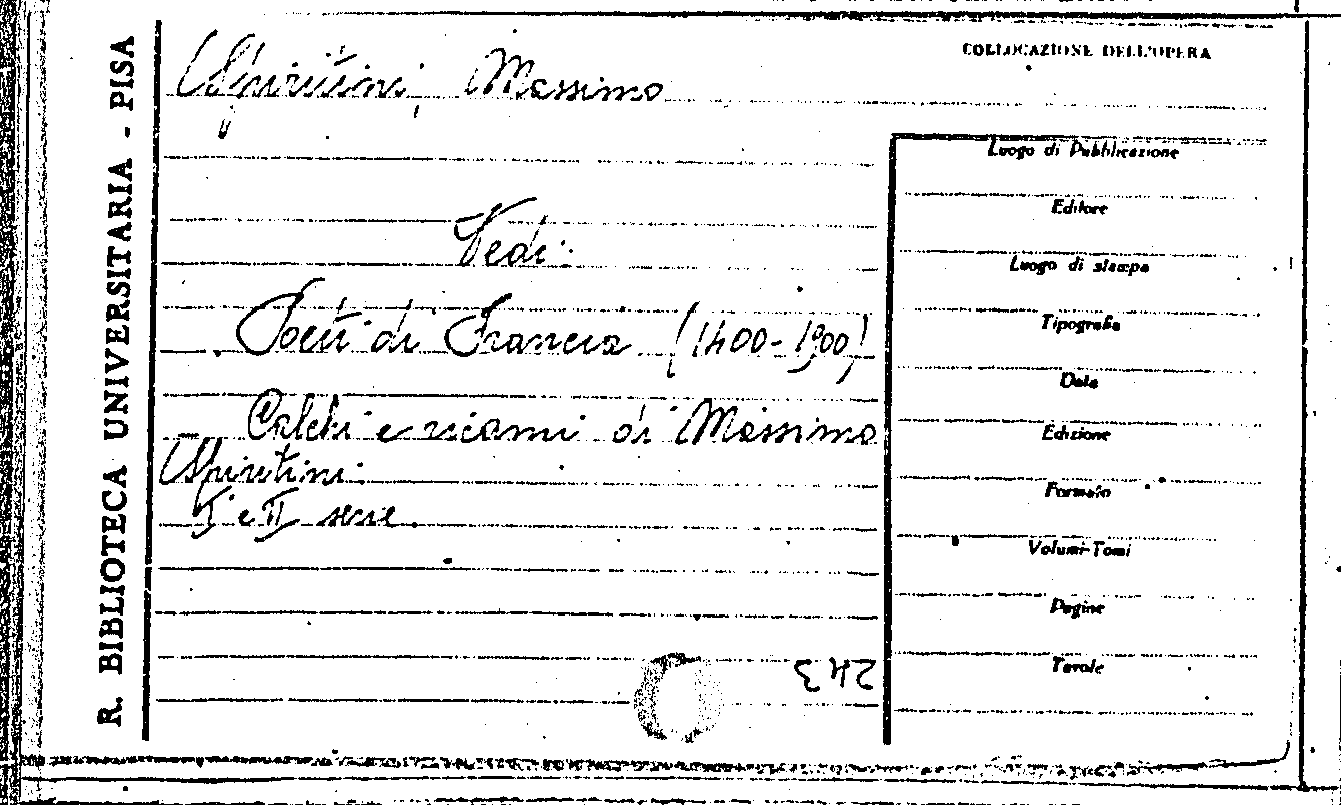 R. BIBLIOTECA UNIVERSITARIA - PISA
Spiritini, Massimo
Vedi:
Poeti di Francia (1400-1900)
Calchi e ricami di Massimo
Spiritini.
I e II serie.
243
COLLOCAZIONE DELL'OPERA
Luogo di Pubblicazione
Editore
Luogo di stampa
Tipografia
Data
Edizione
Formato
Volumi-Tomi
Pagine
Tavole